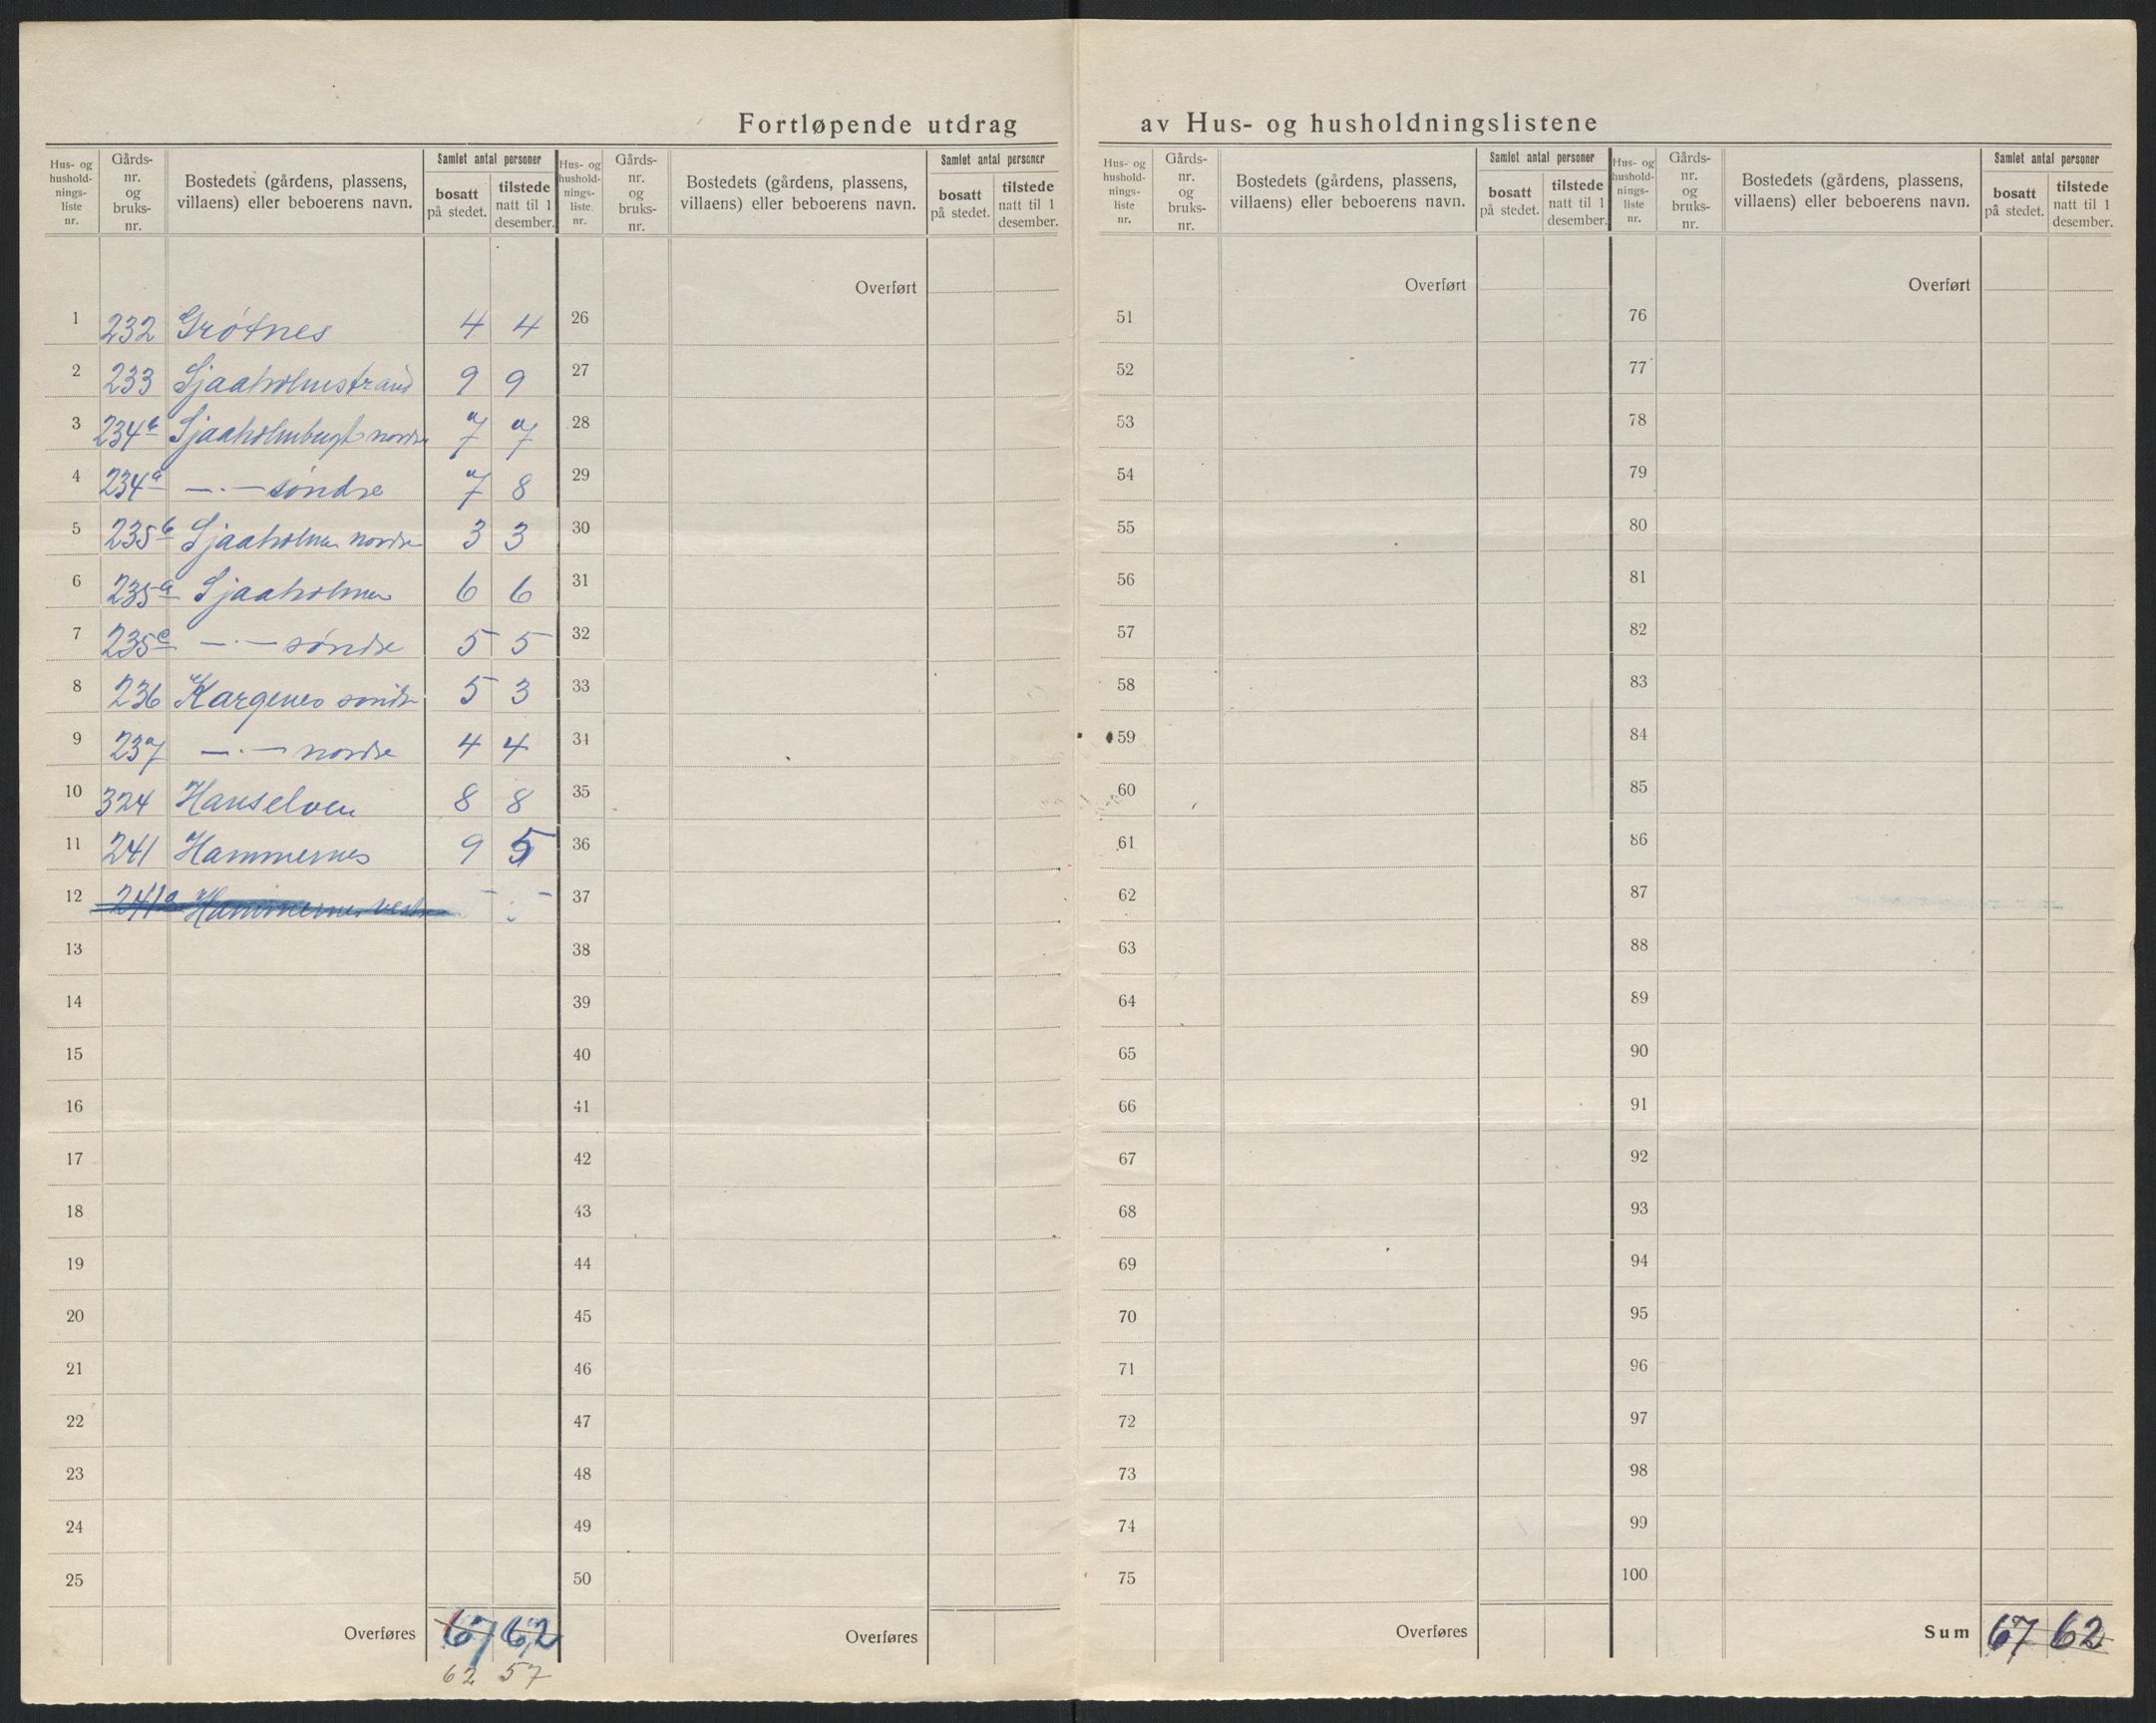 Fortløpende utdrag av Hus- og husholdningslistene
Hus- og hushold-nings-liste nr. Gårds-nr. og bruks-nr. Bostedets (gårdens, plassens, villaens) eller beboerens navn. Samlet antal personer bosatt på stedet. tilstede natt til 1 desember.
Hus- og hushold-nings-liste nr. Gårds-nr. og bruks-nr. Bostedets (gårdens, plassens, villaens) eller beboerens navn. Samlet antal personer bosatt på stedet. tilstede natt til 1 desember.
Hus- og hushold-nings-liste nr. Gårds-nr. og bruks-nr. Bostedets (gårdens, plassens, villaens) eller beboerens navn. Samlet antal personer bosatt på stedet. tilstede natt til 1 desember.
Hus- og hushold-nings-liste nr. Gårds-nr. og bruks-nr. Bostedets (gårdens, plassens, villaens) eller beboerens navn. Samlet antal personer bosatt på stedet. tilstede natt til 1 desember.
Overført Overført Overført
1 232 Grötnes 4 4 26 51 76
2 233 Sjaaholmstrand 9 9 27 52 77
3 234b Sjaaholmbugt nordre 7 7 28 53 78
4 234a —·— søndre 7 8 29 54 79
5 235b Sjaaholmen nordre 3 3 30 55 80
6 235a Sjaaholmen 6 6 31 56 81
7 235c —·— søndre 5 5 32 57 82
8 236 Kargenes søndre 5 3 33 58 83
9 237 —·— nordre 4 4 31 59 84
10 324 Hanselven 8 8 35 60 85
11 241 Hammernes 9 5 36 61 86
12 241a Hammernes vestre - - 37 62 87
13 38 63 88
14 39 64 89
15 40 65 90
16 41 66 91
17 42 67 92
18 43 68 93
19 44 69 94
20 45 70 95
21 46 71 96
22 47 72 97
23 48 73 98
24 49 74 99
25 50 75 100
Overføres 67 62 Overføres Overføres Sum 67 62
62 57